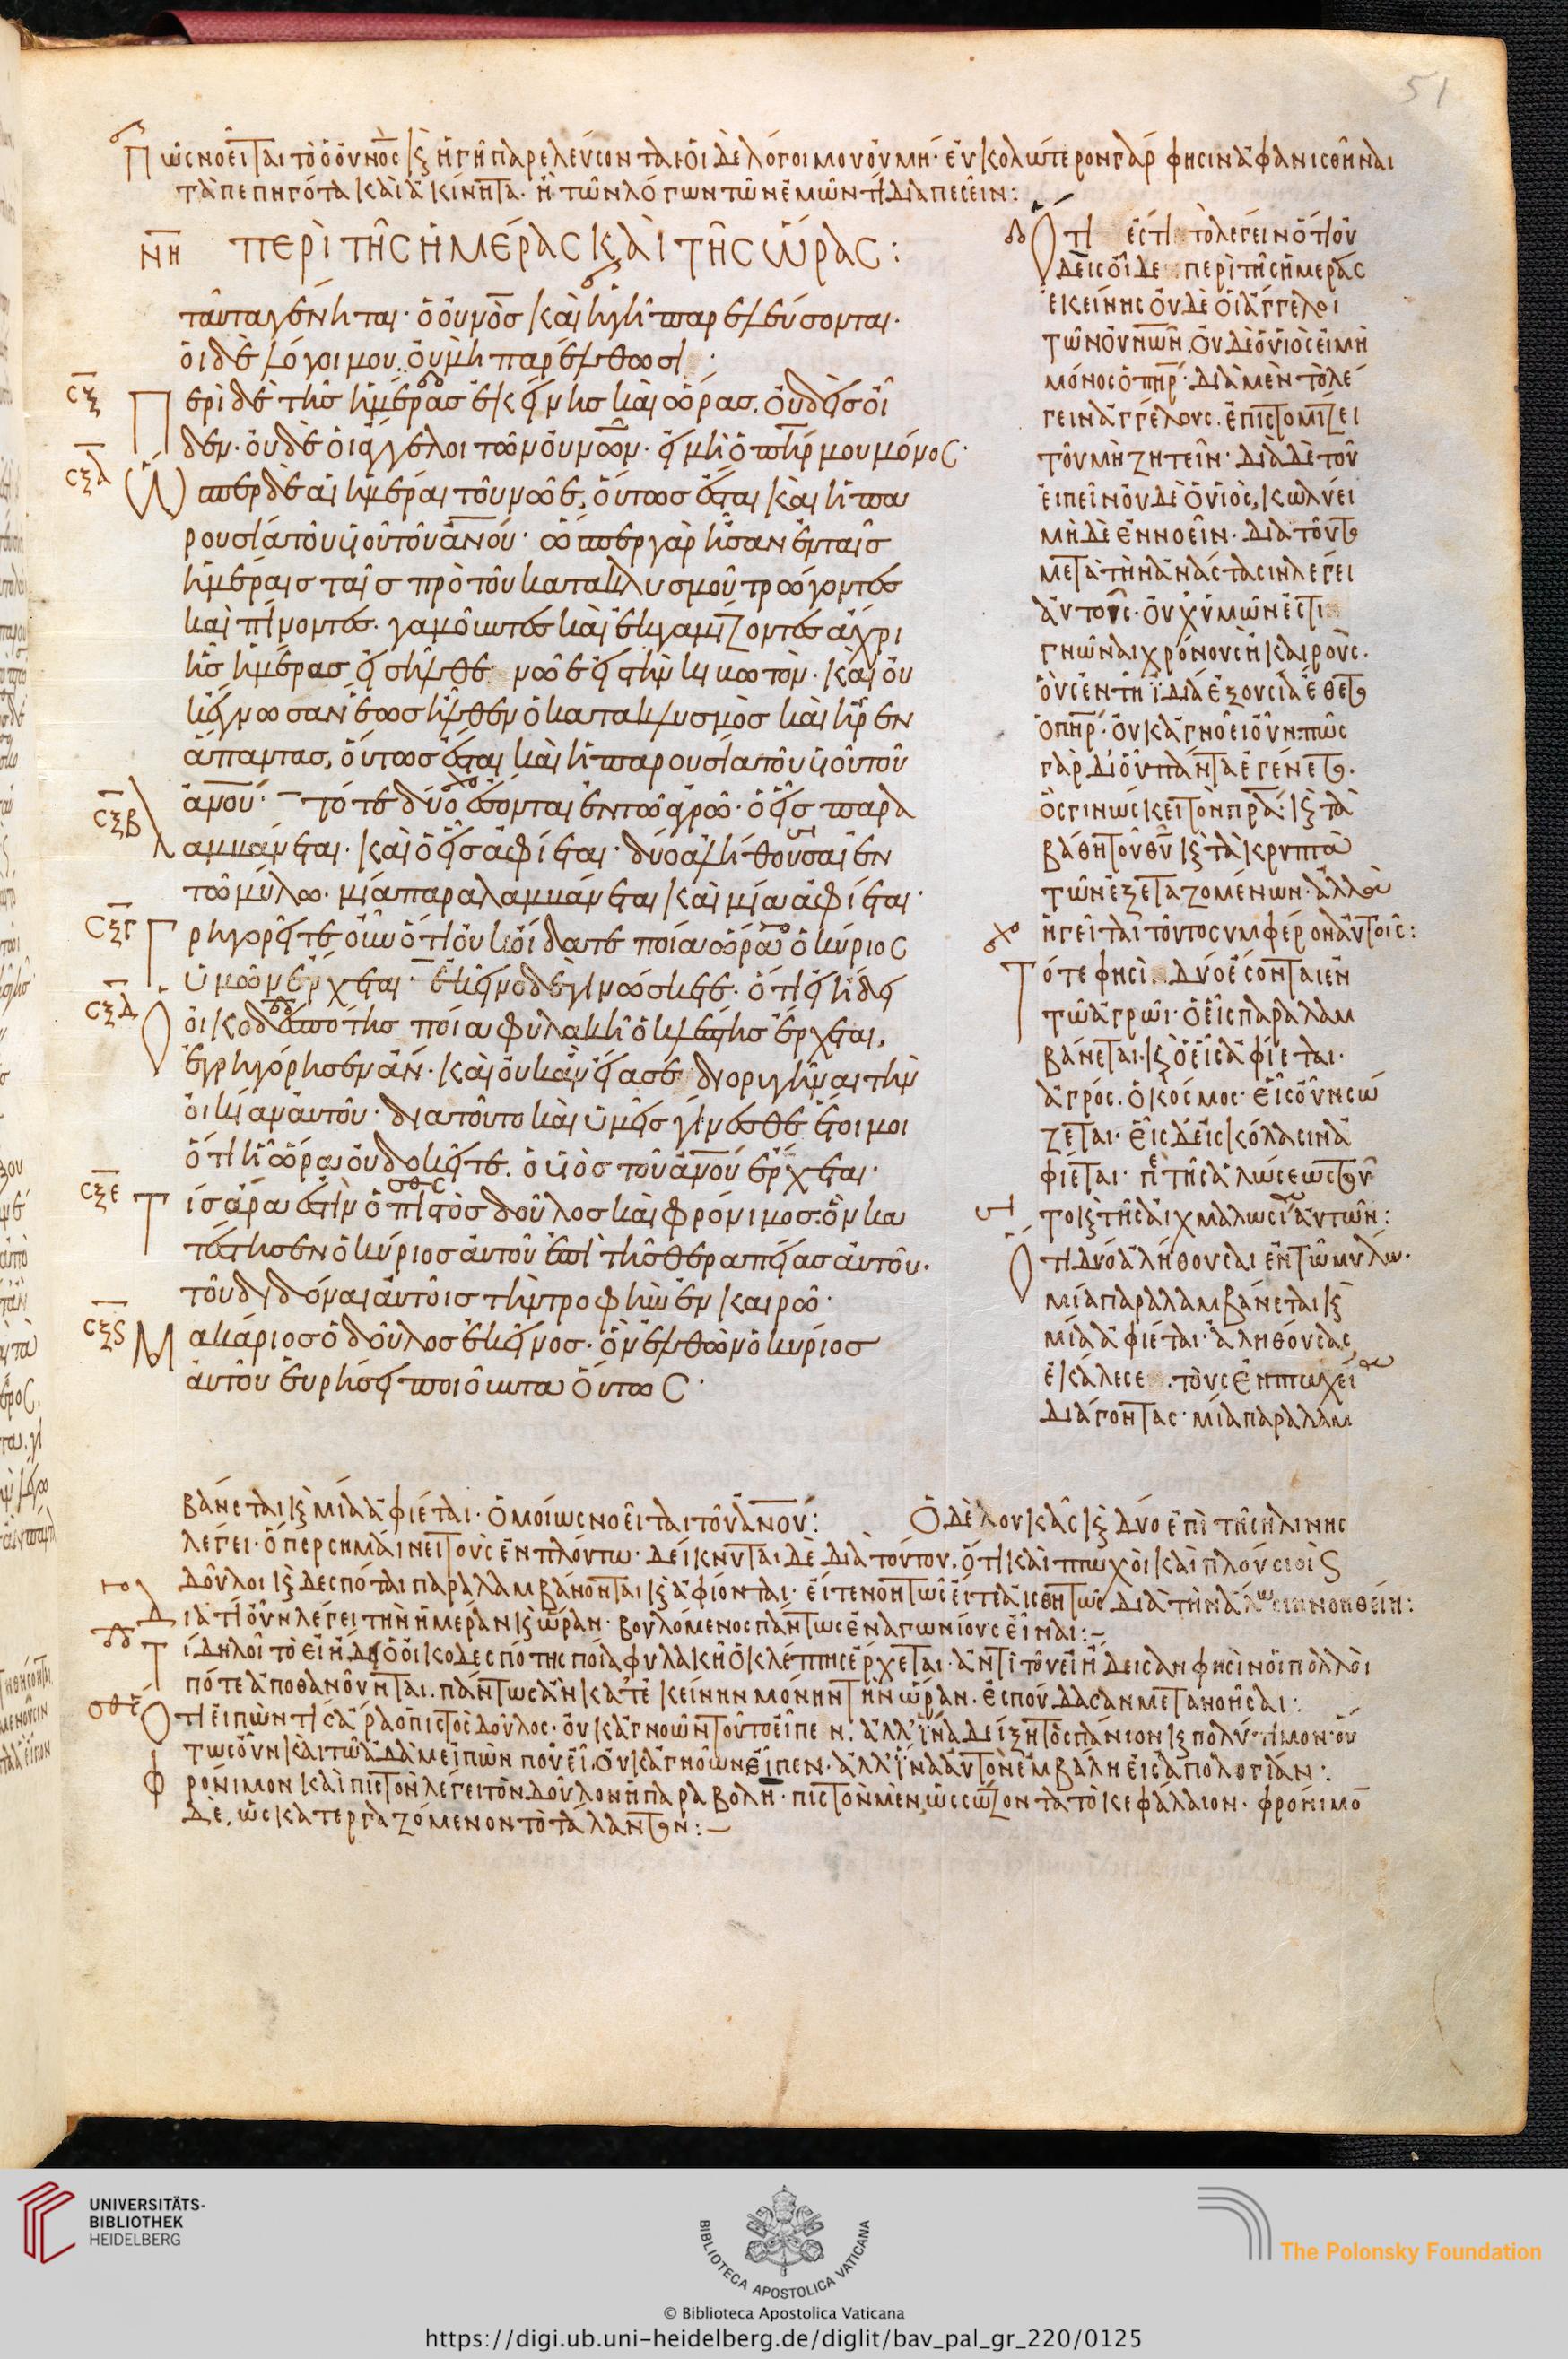 51
Πῶς νοεῖται τὸ ὁ οὐνὸς κ ἡ γῆ παρελεύσονται οἱ δὲ λόγοι μου οὐ μή· εὐκολώτερον γάρ φησιν ἀφανισθῆναι
τὰ πεπηγότα καὶ ἀκίνητα· ἢ τῶν λόγων τῶν ἐμῶν τὶ διαπεσεῖν:
ΝΗ περὶ τῆς ἡμέρας καὶ τῆς ὥρας:
ταῦτα γένηται· ὁ οὐνὸσ καὶ ἡ γῆ παρελεύσονται·
οἱ δὲ λόγοι μου. οὐ μὴ παρέλθωσι:
CΞ Περὶ δὲ τῆσ ἡμέρασ ἐκείνησ καὶ ὥρασ. οὐδεὶσ οἶ
δεν· οὐδὲ οἱ ἄγγελοι τῶν οὐνῶν· εἰ μὴ ὁ πηρ μου μόνος·
CΞΑ Ὥσπερ δὲ αἱ ἡμέραι τοῦ νῶε, οὕτωσ ἔσται καὶ ἡ πα
ρουσία τοῦ υἱοῦ τοῦ ἀνου· ὥσπερ γὰρ ἦσαν ἐν ταῖσ
ἡμέραισ ταῖσ πρὸ τοῦ κατακλυσμοῦ τρώγοντεσ
καὶ πίνοντεσ. γαμοῦντεσ καὶ ἐκγαμίζοντεσ ἄχρι
ἧσ ἡμέρασ εἰσῆλθε νῶε εἰσ τὴν κιβωτὸν. καὶ οὐ
κ ἔγνωσαν ἕωσ ἦλθεν ὁ κατακλυσμὸσ καὶ ἦρεν
ἅπαντασ, οὕτωσ ἔσται καὶ ἡ παρουσία τοῦ υἱοῦ τοῦ
ἀνου·
CΞΒ τότε δύο ἔσονται ἐν τῶ ἀγρῶ· ὁ εἷσ παρα
λαμβάνεται· καὶ ὁ εἷσ ἀφίεται· δύο ἀλήθουσαι ἐν
τῶ μύλω. μία παραλαμβάνεται καὶ μία ἀφίεται·
CΞΓ Γρηγορεῖτε οὖν ὅτι οὐκ οἴδατε ποία ὥρα ὁ κύριος
ὑμῶν ἔρχεται·
CΞΔ ἐκεῖνο δὲ γινώσκετε· ὅτι εἰ ἤδει
Ὁ οἰκοδεσπότησ ποία φυλακῆ ὁ κλέπτησ ἔρχεται,
ἐγρηγόρησεν ἂν· καὶ οὐκ ἂν εἴασε διορυγῆναι τὴν
οἰκίαν αὐτοῦ· διατοῦτο καὶ ὑμεῖσ γίνεσθε ἕτοιμοι
ὅτι ἧ ὥρα οὐ δοκεῖτε. ὁ υἱὸσ τοῦ ἀνου ἔρχεται·
CΞΕ Τίσ ἄρα ἐστὶν ὁ πιστὸσ δοῦλοσ καὶ φρόνιμοσ. ὃν κα
τέστησεν ὁ κύριοσ αὐτοῦ ἐπὶ τῆσ θεραπείασ αὐτοῦ.
τοῦ διδόναι αὐτοῖσ τὴν τροφὴν ἐν καιρῶ·
CΞϚ Μακάριοσ ὁ δοῦλοσ ἐκεῖνοσ· ὃν ἐλθὼν ὁ κύριοσ
αὐτοῦ εὑρήσει ποιοῦντα οὕτως·
Ὅτι ἐστὶ τὸ λέγειν ὅτι οὐ
δεὶς οἶδε περὶ τῆς ἡμέρας
ἐκείνης οὐδὲ οἱ ἄγγελοι
τῶν οὐνῶν. οὐδὲ ὁ υἱὸς εἰ μὴ
μόνος ὁ πηρ· διὰ μὲν τὸ λέ
γειν ἀγγέλους. ἐπιστομίζει
τοῦ μὴ ζητεῖν· διὰ δὲ τοῦ
εἰπεῖν οὐδὲ ὁ υἱός, κωλύει
μηδὲ ἐννοεῖν· διατοῦτο
μετὰ τὴν ἀνάστασιν λέγει
αὐτοῖς· οὐχ ὑμῶν ἐστι
γνῶναι χρόνους ἢ καιρούς.
οὓς ἐν τῆ ἰδία ἐξουσία ἔθετο
ὁ πηρ· οὐκ ἀγνοεῖ οὖν πῶς
γὰρ δι οὗ πάντα ἐγένετο.
ὃς γινώσκει τὸν πρα· κ τὰ
βάθη τοῦ θυ κ τὰ κρυπτὰ
τῶν ἐξεταζομένων· ἀλλὰ
ἡγεῖται τοῦτο συμφέρον αὐτοῖς:
Τότε φησὶ δύο ἔσονται ἐν
τῶ ἀγρῶι· ὁ εἷς παραλαμ
βάνεται κ ὁ εἷς ἀφίεται·
ἀγρός. ὁ κόσμος· εἷς οὖν σώ
ζεται· εἷς δὲ εἰς κόλασιν ἀ
φίεται· περὶ τῆς ἁλώσεως τοῦ
το κ τῆς αἰχμαλωσίας αὐτῶν:
Ὅτι δύο ἀλήθουσαι ἐν τῶ μύλω·
μία παραλαμβάνεται κ
μία ἀφίεται· ἀληθούσας
ἐκάλεσε τοὺς ἐν πτωχεία
διάγοντας· μία παραλαμ
βάνεται κ μία ἀφίεται· ὁμοίως νοεῖται τοῦ ἀνου: Ὁ δὲ λουκᾶς κ δύο ἐπὶ τῆς κλίνης
λέγει· ὅπερ σημαίνει τοὺς ἐν πλούτω· δείκνυται δὲ διὰ τούτου. ὅτι καὶ πτωχοὶ καὶ πλούσιοι κ
δοῦλοι κ δεσπόται παραλαμβάνονται κ ἀφίονται· εἴτε νοητῶς εἴτε αἰσθητῶς διὰ τὴν ἅλωσιν νοηθείη:
Διατί οὖν λέγει τὴν ἡμέραν κ ὥραν· βουλόμενος πάντως ἐναγωνίους εἶναι:
Τί δηλοῖ τὸ εἰ ἤδει ὁ οἰκοδεσπότης ποία φυλακῆ ὁ κλέπτης ἔρχεται· ἀντὶ τοῦ εἰ ἤδεισαν φησὶν οἱ πολλοὶ
πότε ἀποθανοῦνται. πάντως ἂν κατ ἐκείνην μόνην τὴν ὥραν. ἐσπούδασαν μετανοῆσαι:
Ὅτι εἰπὼν τίς ἄρα ὁ πιστὸς δοῦλος· οὐκ ἀγνοῶν τοῦτο εἶπεν. ἀλλ ἵνα δείξη τὸ σπάνιον κ πολύτιμον· οὕ
τως οὖν καὶ τῶ ἀδὰμ εἰπὼν ποῦ εἶ. οὐκ ἀγνοῶν εἶπεν. ἀλλ ἵνα αὐτὸν ἐμβάλη εἰς ἀπολογίαν:
Φρόνιμον καὶ πιστὸν λέγει τὸν δοῦλον ἡ παραβολὴ· πιστὸν μὲν, ὡς σώζοντα τὸ κεφάλαιον· φρόνιμο
δὲ, ὡς κατεργαζόμενον τὸ τάλαντον:
UNIVERSITÄTS-
BIBLIOTHEK
HEIDELBERG
BIBLIOTECA APOSTOLICA VATICANA
The Polonsky Foundation
© Biblioteca Apostolica Vaticana
https://digi.ub.uni-heidelberg.de/diglit/bav_pal_gr_220/0125